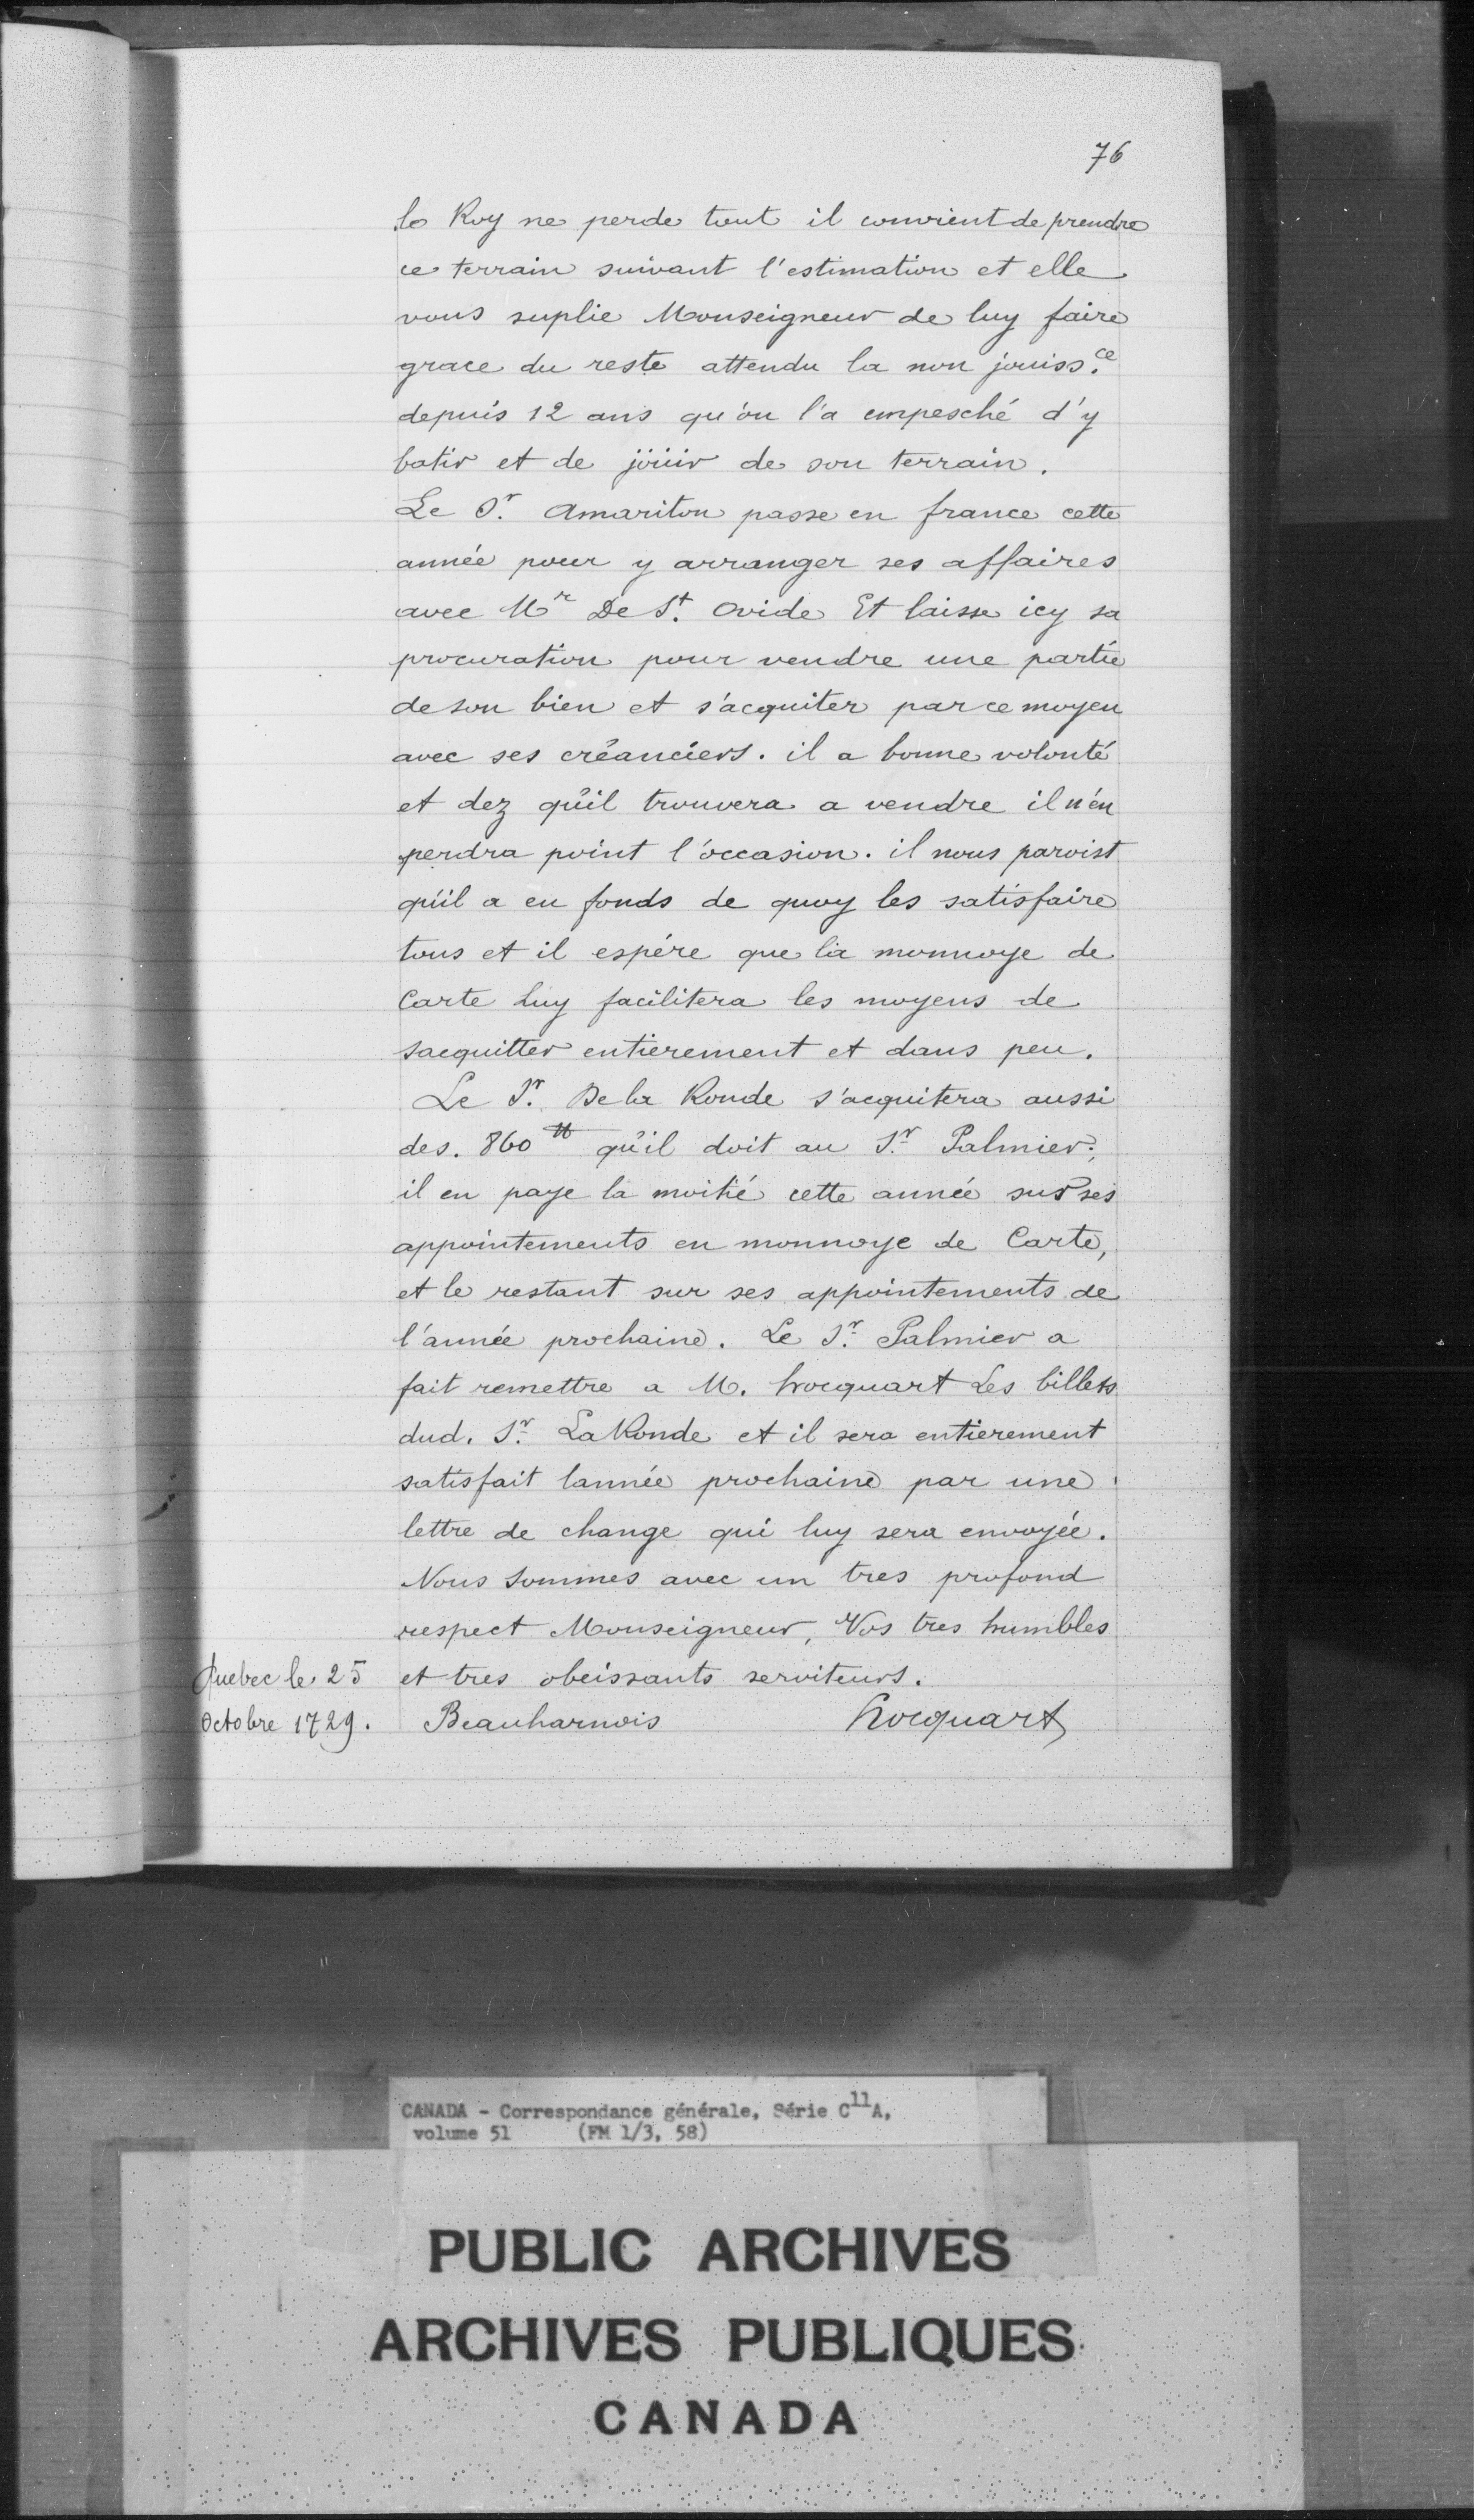 76
le Roy ne perde tout il convient de prendre
ce terrain suivant l'estimation et elle
vous suplie Monseigneur de luy faire
grace du reste attendu la non jouiss.ce
depuis 12 ans qu'on l'a empesché d'y
batir et de joüir de son terrain.
Le Sr. Amariton passe en france cette
année pour y arranger ses affaires
avec Mr De St. Ovide Et laisse icy sa
procuration pour vendre une partie
de son bien et s'acquiter par ce moyen
avec ses créanciers. il a bonne volonté
et dez qu'il trouvera a vendre il n'en
perdra point l'occasion. il nous paroist
qu'il a en fonds de quoy les satisfaire
tous et il espére que la monnoye de
Carte Luy facilitera les moyens de
sacquitter entierement et dans peu.
Le Sr. De la Ronde s'acquitera aussi
des. 860 ₶ qu'il doit au Sr. Palmier;
il en paye la moitié cette année sur ses
appointements en monnoye de Carte,
et le restant sur ses appointements de
l'année prochaine. Le Sr. Palmier a
fait remettre a M. hocquart Les billets
dud. Sr. LaRonde et il sera entierement
satisfait lannée prochaine par une
lettre de change qui luy sera envoyée.
Nous sommes avec un tres profond
respect Monseigneur, Vos tres humbles
et tres obeissants serviteurs.
Quebec le 25
Octobre 1729.
Beauharnois hocquart
CANADA - Correspondance générale, Série C11A,
volume 51 (FM 1/3, 58)
PUBLIC ARCHIVES
ARCHIVES PUBLIQUES
CANADA